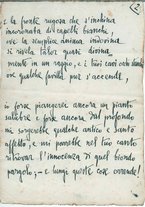 2
e la fronte rugosa che s'inchina
incoronata di capelli bianchi
ove la semplice anima indovina
si rivela talor quasi divina
mente in un raggio, e i tuoi cari occhi stanchi
ove qualche favilla pur s'accende,
io forse piangerei ancora un pianto
salubre e forse ancor dal profondo
mi sorgerebbe qualche antico e santo
affetto ancor, e mi parrebbe nel tuo canto
ritrovar l'innocenza di quel biondo
pargolo; – e lungi queste cose orrende!